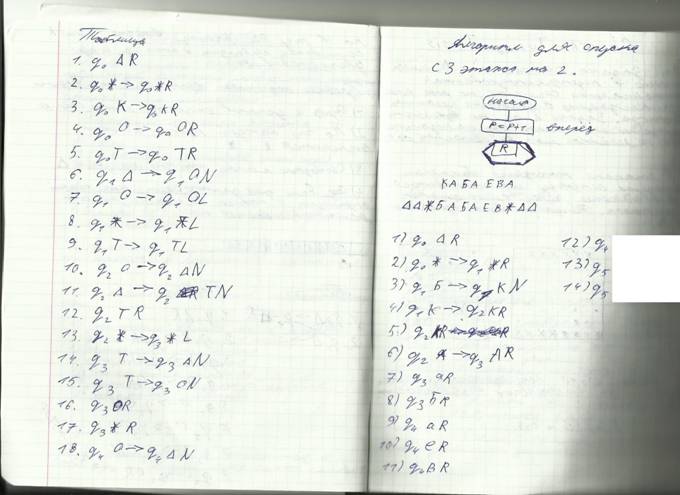 Таблица
1. q₀ Δ R
2. q₀ * → q₀ * R
3. q₀ К → q₀ К R
4. q₀ О → q₀ О R
5. q₀ Т → q₀ Т R
6. q₁ Δ → q₁ О N
7. q₁ О → q₁ О L
8. q₁ * → q₁ * L
9. q₁ Т → q₁ Т L
10. q₂ О → q₂ Δ N
11. q₂ Δ → q₂ Т N
12. q₂ Т R
13. q₂ * → q₃ * L
14. q₃ Т → q₃ а N
15. q₃ Т → q₃ О N
16. q₃ О R
17. q₃ * R
18. q₄ О → q₄ Δ N
Алгоритм для спуска
с 3 этажа на 2.
начало
P = P+1 вперёд
R
КАБАЕВА
ΔΔЖБАБАЕВЖΔΔ
1) q₀ Δ R
2) q₀ * → q₁ * R
3) q₁ Б → К N
4) q₁ К → q₂ К R
5) q₂
6) q₂ → q₃ А R
7) q₃ а R
8) q₃ Б R
9) q₄ а R
10) q₄ е R
11) В R
12) q₄
13) q₅
14) q₅